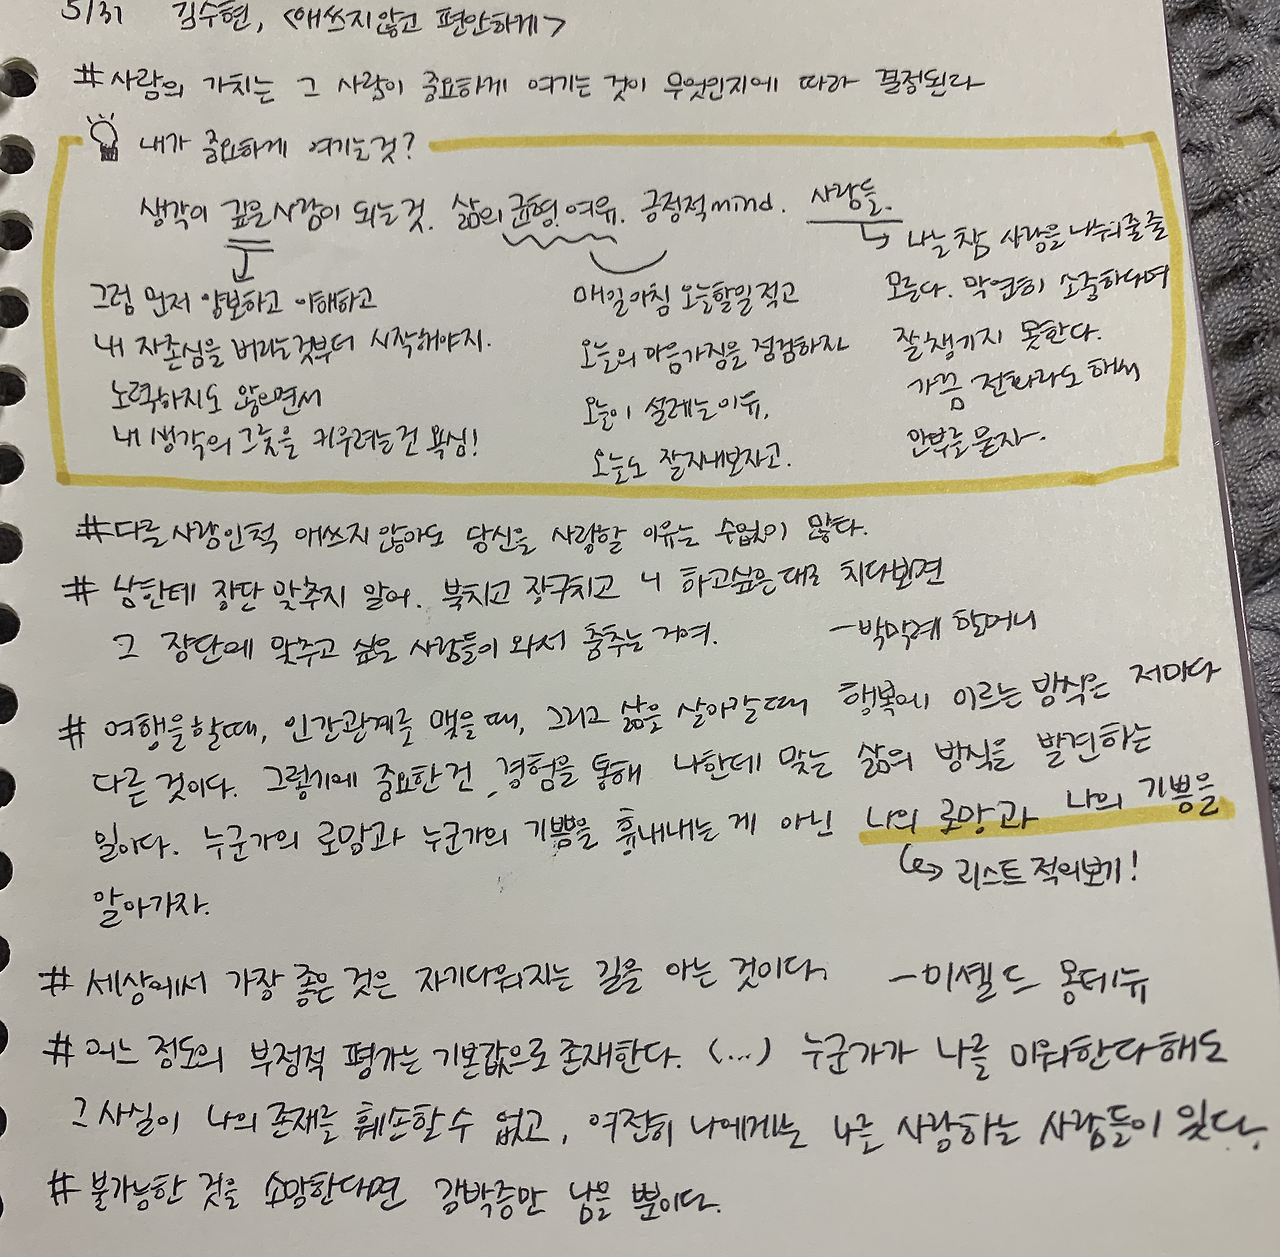 5/31 김수현, <애쓰지 않고 편안하게>
# 사람의 가치는 그 사람이 중요하게 여기는 것이 무엇인지에 따라 결정된다
내가 중요하게 여기는 것?
생각이 깊은 사람이 되는 것. 삶의 균형. 여유. 긍정적 mind. 사람들.
그럼 먼저 양보하고 이해하고
내 자존심을 버리는것부터 시작해야지.
노력하지도 않으면서
내 생각의 그릇을 키우려는건 욕심!
매일아침 오늘할일 적고
오늘의 마음가짐을 점검하자
오늘이 설레는 이유,
오늘도 잘지내보자고.
↳ 나는 참 사랑을 나눠줄 줄
모른다. 막연히 소중하다며
잘 챙기지 못한다.
가끔 전화라도 해서
안부를 묻자.
# 다른 사람인척 애쓰지 않아도 당신을 사랑할 이유는 수없이 많다.
# 남한테 장단 맞추지 말어. 북치고 장구치고 니 하고싶은대로 치다보면
그 장단에 맞추고 싶은 사람들이 와서 춤추는 거여. -박막례 할머니
# 여행을 할때, 인간관계를 맺을 때, 그리고 삶을 살아갈때 행복에 이르는 방식은 저마다
다른 것이다. 그렇기에 중요한건, 경험을 통해 나한테 맞는 삶의 방식을 발견하는
일이다. 누군가의 로망과 누군가의 기쁨을 흉내내는 게 아닌 나의 로망과 나의 기쁨을
↪ 리스트 적어보기!
알아가자.
# 세상에서 가장 좋은 것은 자기다워지는 길을 아는 것이다. -미셸 드 몽테뉴
# 어느 정도의 부정적 평가는 기본값으로 존재한다. (...) 누군가가 나를 미워한다 해도
그 사실이 나의 존재를 훼손할 수 없고, 여전히 나에게는 나를 사랑하는 사람들이 있다.
# 불가능한 것을 소망한다면 강박증만 남을 뿐이다.